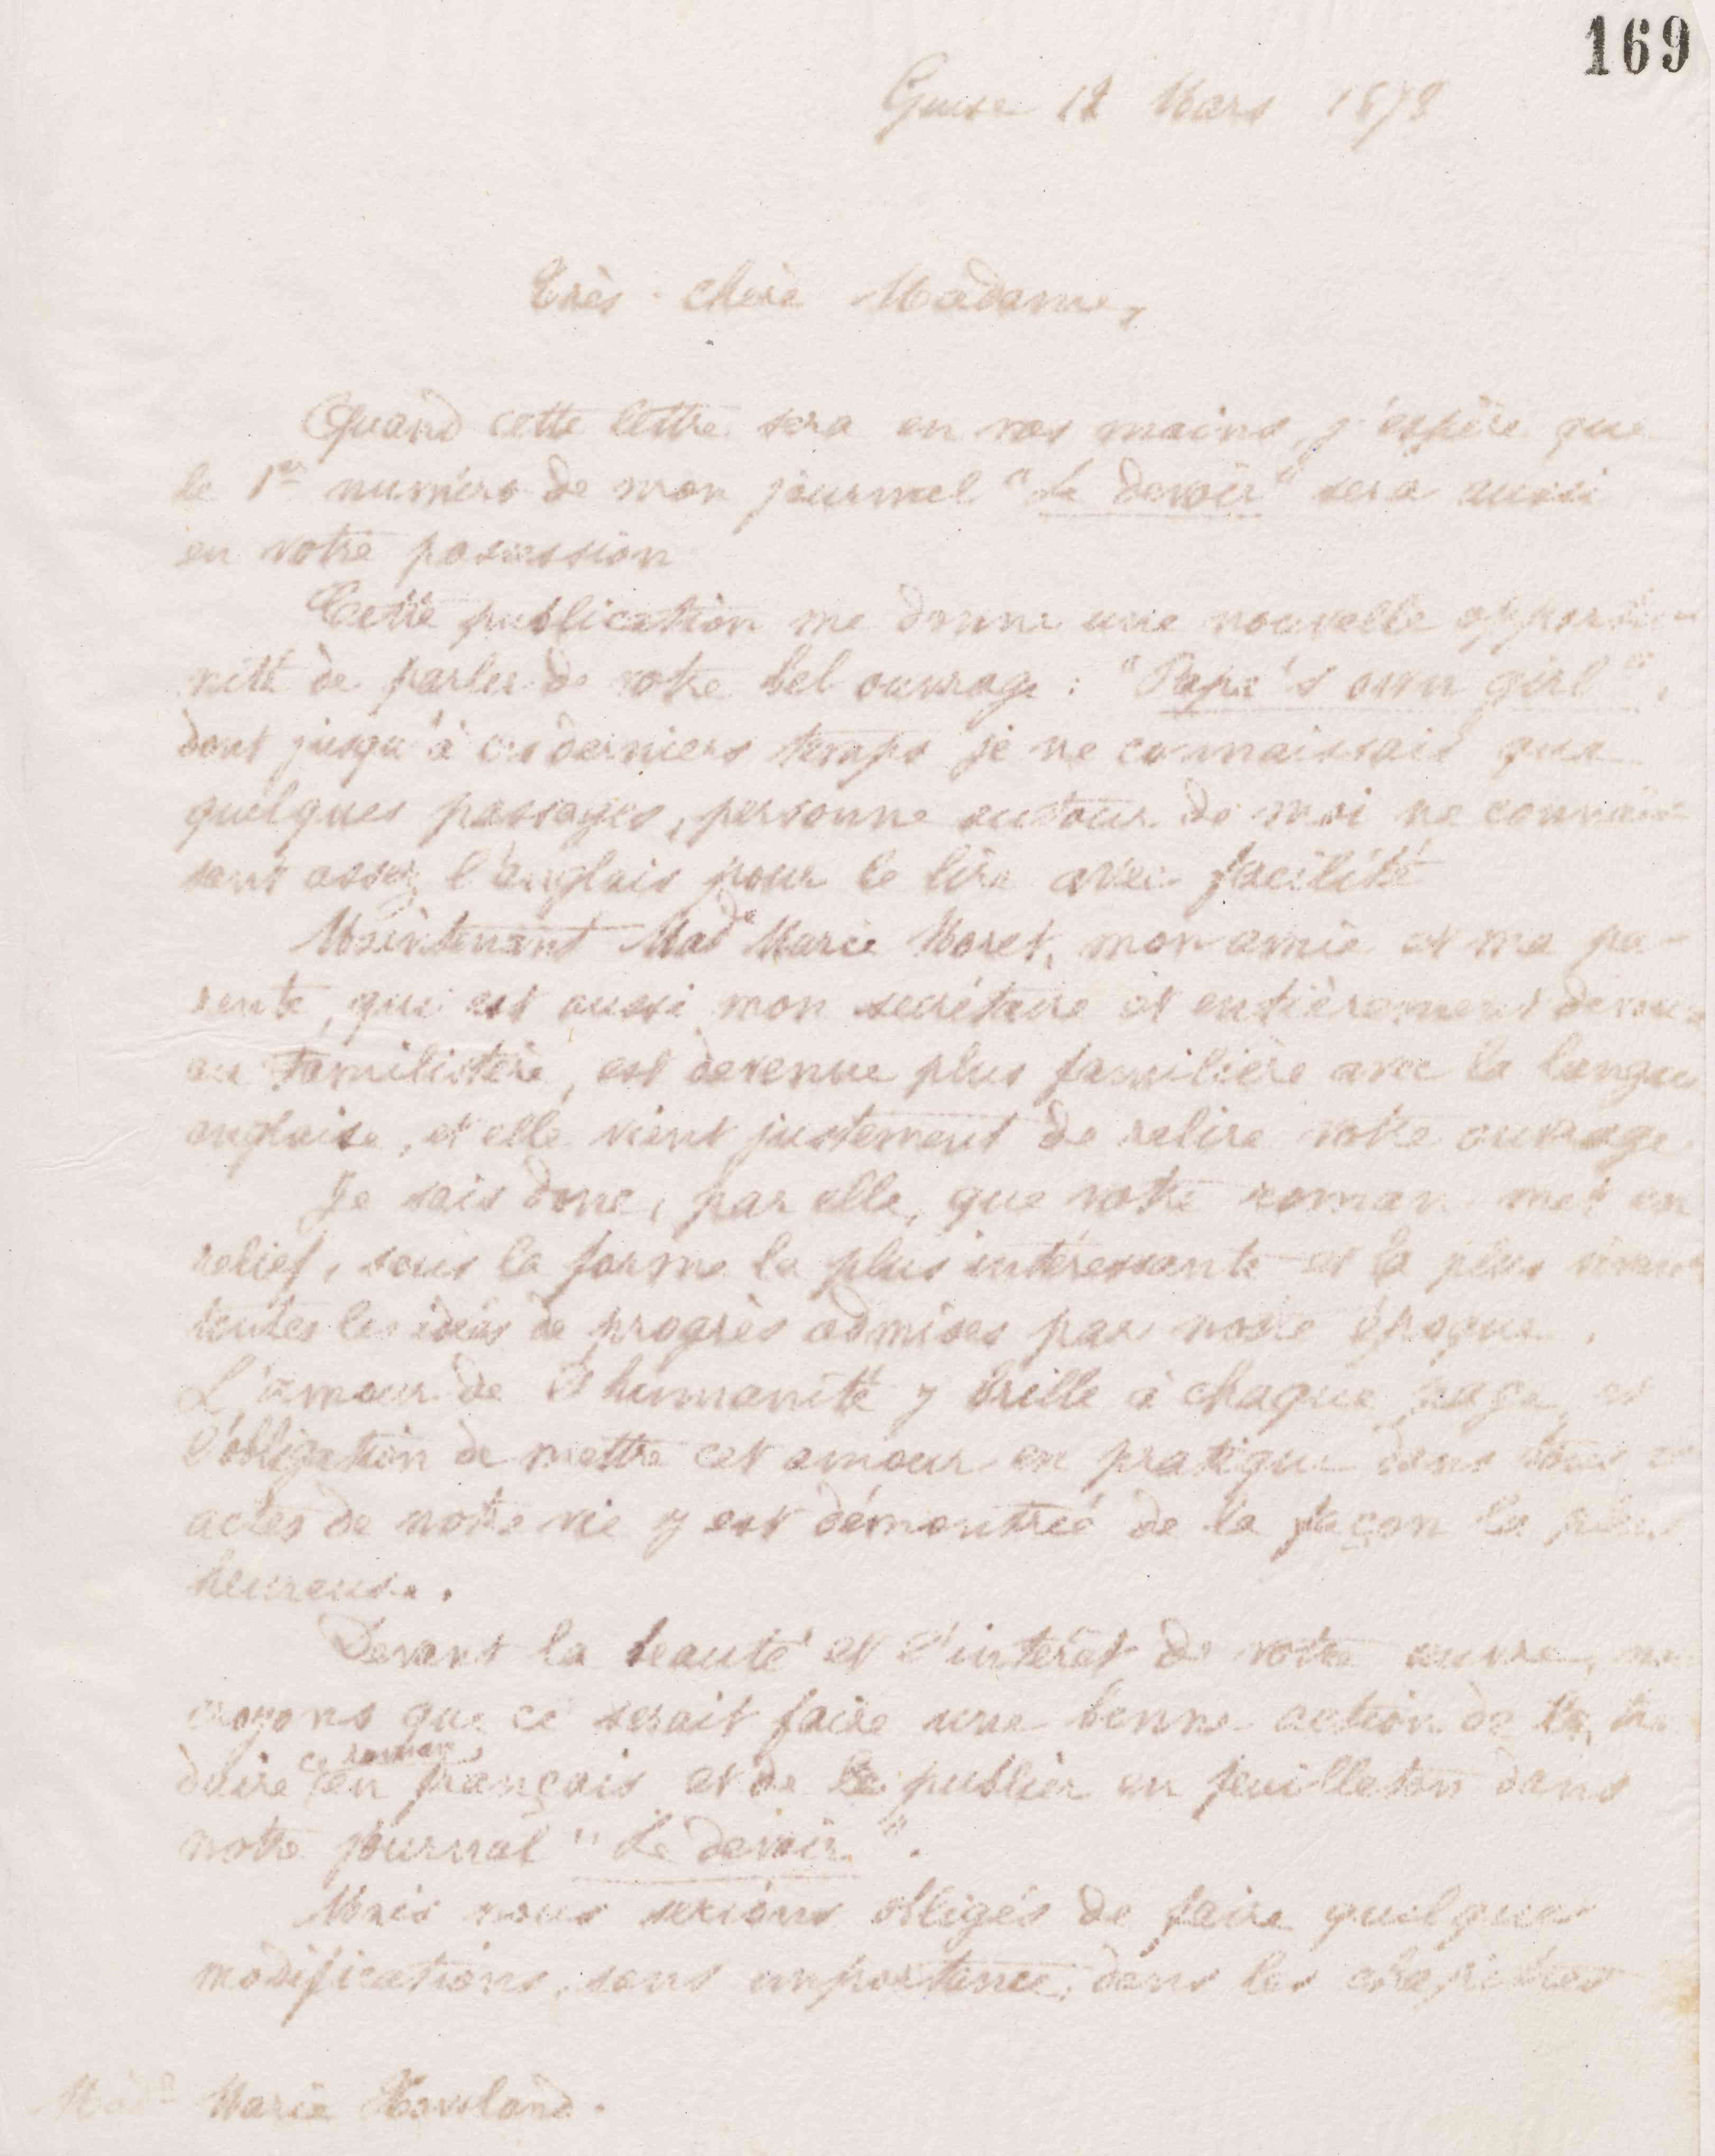 169
Guise 12 Mars 1878
Très chère Madame,
Quand cette lettre sera en vos mains, j'espère que
le 1er numéro de mon journal "Le devoir" sera aussi
en votre possession
Cette publication me donne une nouvelle opportu-
nité de parler de votre bel ouvrage : "Papa's own girl",
dont jusqu'à ces derniers temps je ne connaissais que
quelques passages, personne autour de moi ne connais-
sant assez l'anglais pour le lire avec facilité
Maintenant Made Marie Moret, mon amie et ma pa-
rente, qui est aussi mon secrétaire et entièrement dévouée
au Familistère, est devenue plus familière avec la langue
anglaise, et elle vient justement de relire votre ouvrage
Je sais donc, par elle, que votre roman met en
relief, sous la forme la plus intéressante et la plus vivante
toutes les idées de progrès admises par notre époque.
L'amour de l'humanité y brille à chaque page et
l'obligation de mettre cet amour en pratique dans tous les
actes de notre vie y est démontrée de la façon la plus
heureuse.
Devant la beauté et l'intérêt de votre œuvre, nous
croyons que ce serait faire une bonne action de tra
duire ce roman en français et de le publier en feuilleton dans
notre journal "Le devoir".
Mais nous serions obligés de faire quelques
modifications, sans importance, dans les chapitres
Made Marie Howland.